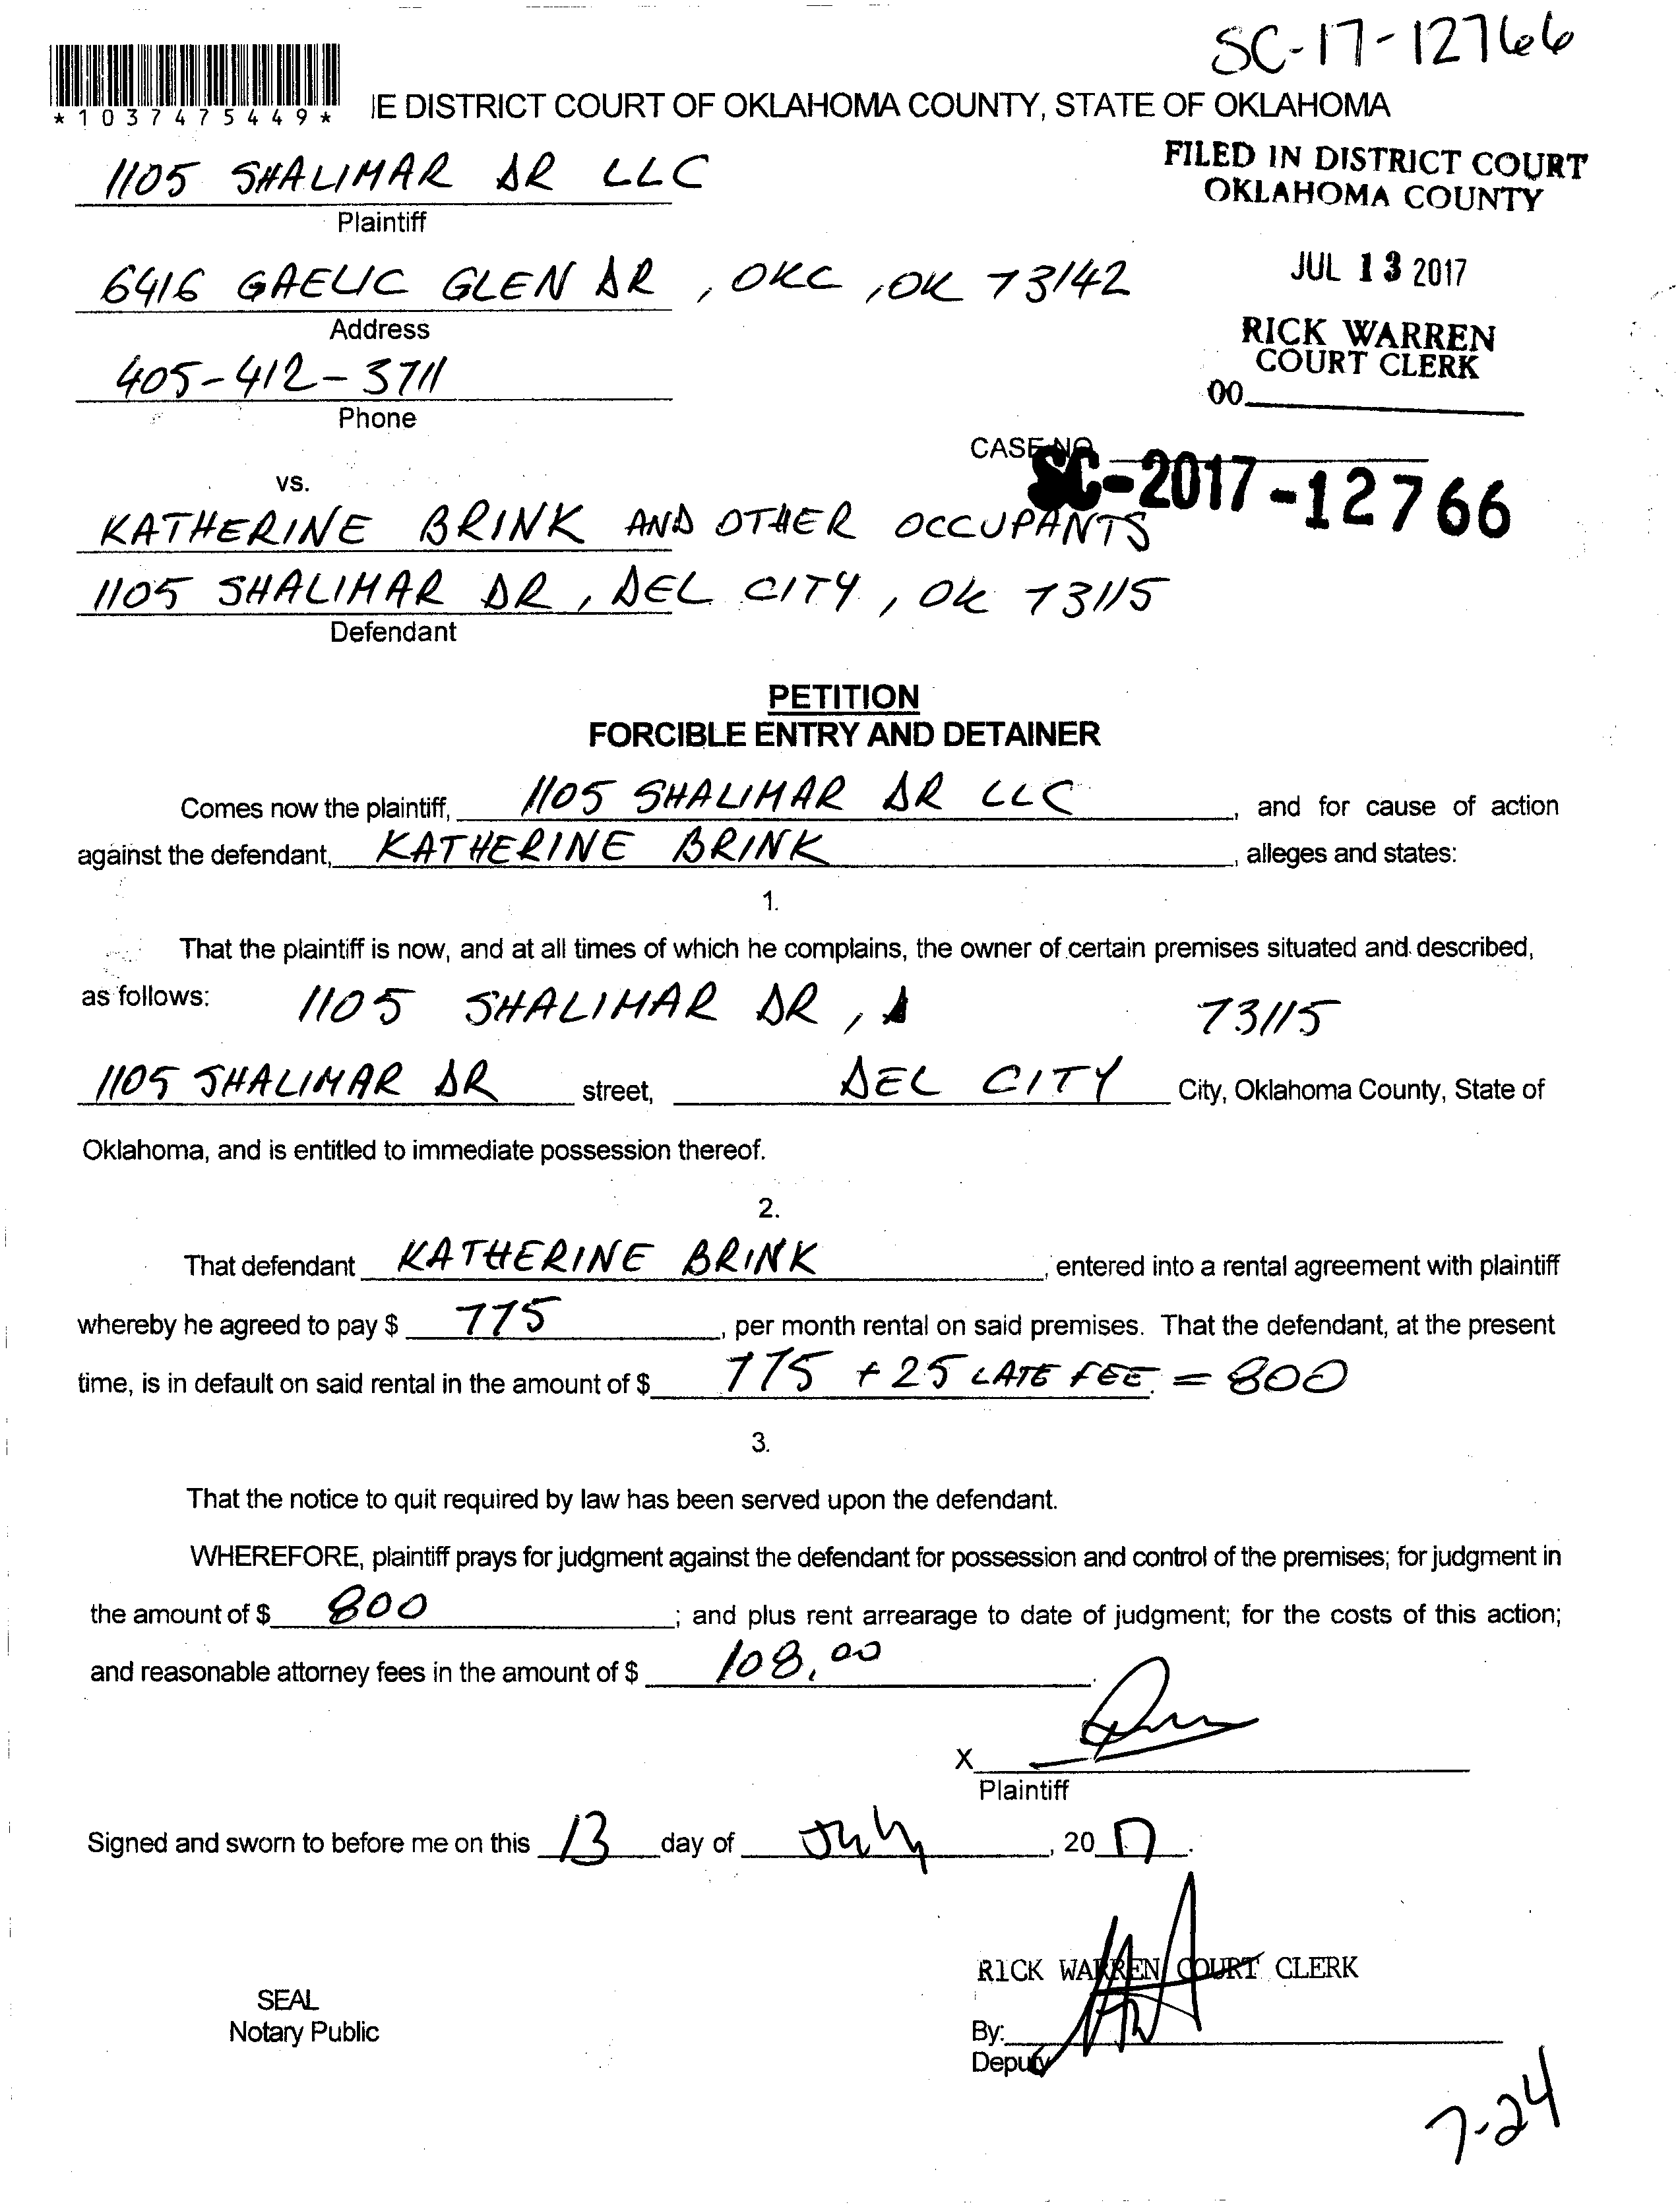 SC-17-12766
*1037475449*
IE DISTRICT COURT OF OKLAHOMA COUNTY, STATE OF OKLAHOMA
1105 SHALIMAR DR LLC
Plaintiff
FILED IN DISTRICT COURT
OKLAHOMA COUNTY
6416 GAELIC GLEN DR, OKC, OK 73142
Address
JUL 13 2017
405-412-3711
Phone
RICK WARREN
COURT CLERK
00
CASE NO.
SC-2017-12766
vs.
KATHERINE BRINK AND OTHER OCCUPANTS
1105 SHALIMAR DR, DEL CITY, OK 73115
Defendant
PETITION
FORCIBLE ENTRY AND DETAINER
Comes now the plaintiff, 1105 SHALIMAR DR LLC, and for cause of action
against the defendant, KATHERINE BRINK, alleges and states:
1.
That the plaintiff is now, and at all times of which he complains, the owner of certain premises situated and described,
as follows: 1105 SHALIMAR DR, 73115
1105 SHALIMAR DR street, DEL CITY City, Oklahoma County, State of
Oklahoma, and is entitled to immediate possession thereof.
2.
That defendant KATHERINE BRINK, entered into a rental agreement with plaintiff
whereby he agreed to pay $ 775, per month rental on said premises. That the defendant, at the present
time, is in default on said rental in the amount of $ 775 + 25 LATE FEE. = 800
3.
That the notice to quit required by law has been served upon the defendant.
WHEREFORE, plaintiff prays for judgment against the defendant for possession and control of the premises; for judgment in
the amount of $ 800; and plus rent arrearage to date of judgment; for the costs of this action;
and reasonable attorney fees in the amount of $ 108.00.
X
Plaintiff
Signed and sworn to before me on this 13 day of July, 2017.
RICK WARREN COURT CLERK
SEAL
Notary Public
By:
Deputy
7-24